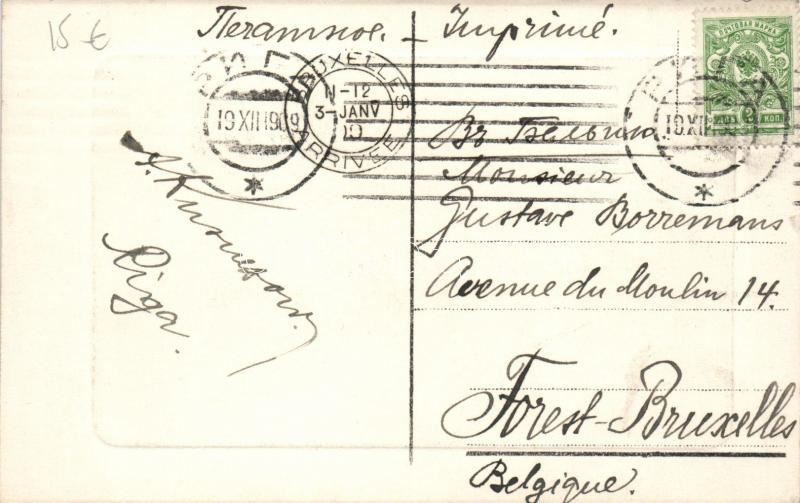 15 €
Печатное. – Imprimé.
ПОЧТОВАЯ МАРКА
2 КОП.
РИГА
19 XII 1909
BRUXELLES
11-12
3-JANV
10
ARRIVÉE
РИГА
19 XII 1909
Въ Бельгию
Monsieur
Gustave Borremans
Avenue du Moulin 14.
Forest-Bruxelles
Belgique.
Riga.